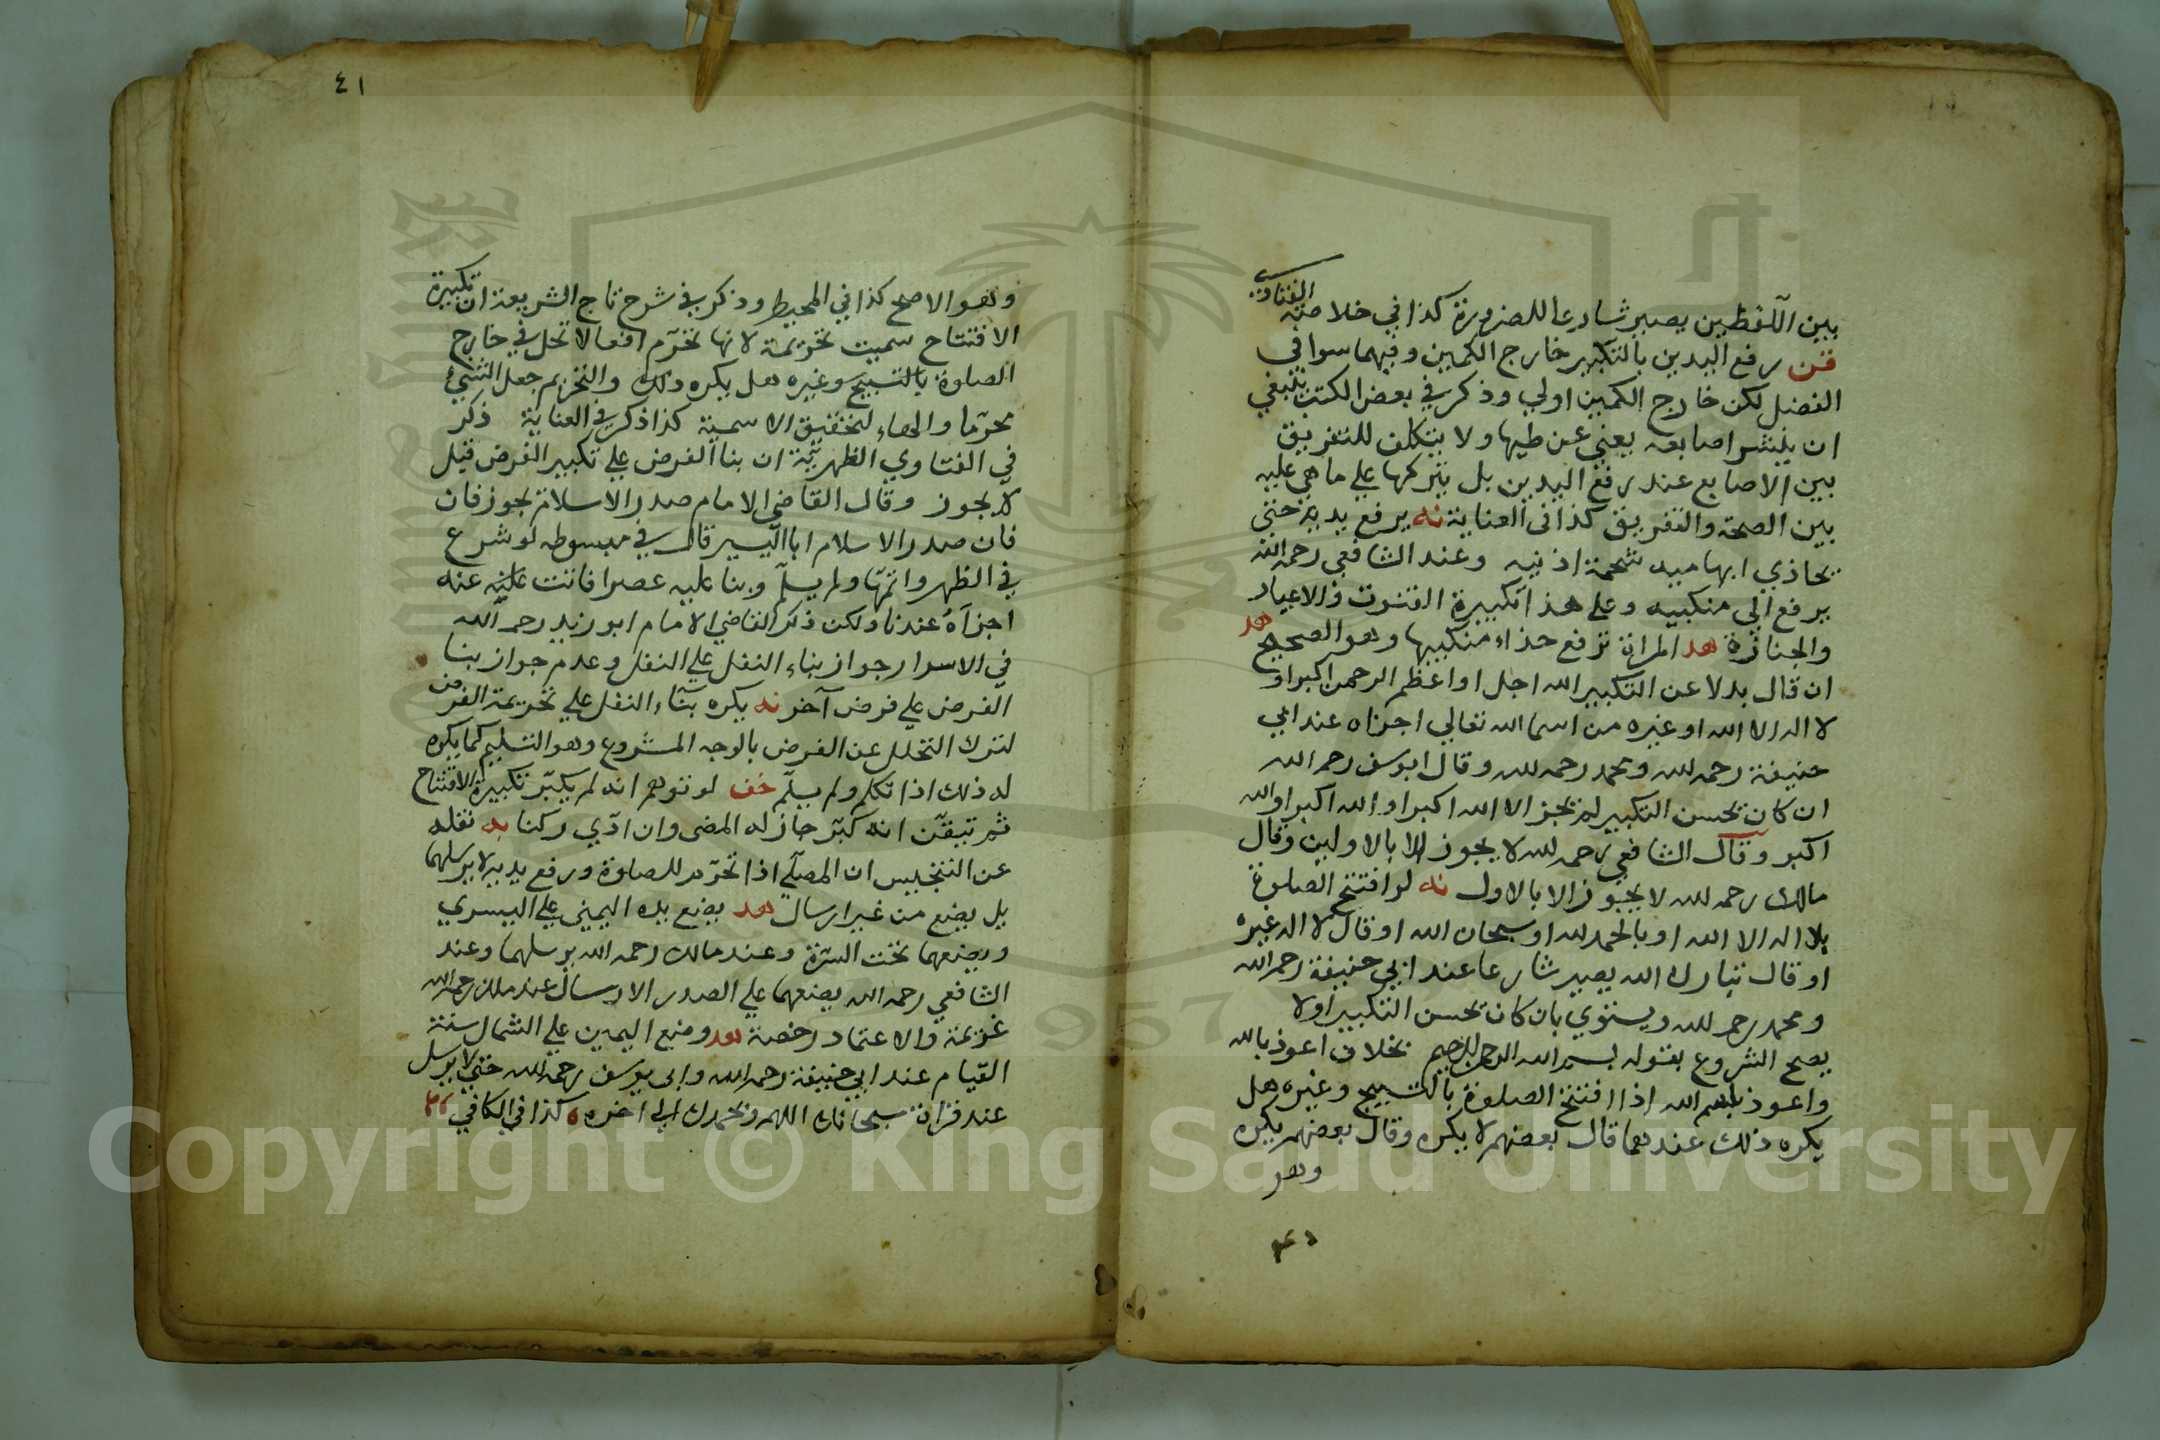 بين اللفظين يصير شارعا للضرورة كذا في خلاصة الفتاوي
قن رفع اليدين بالتكبير خارج الكمين وفيهما سوا في
الفضل لكن خارج الكمين اولي وذكر في بعض الكتب ينبغي
ان ينشر اصابعه يعني عن طيها ولا يتكلف للتفريق
بين الاصابع عند رفع اليدين بل يتركها علي ما هي عليه
بين الضمة والتفريق كذا في العناية نه يرفع يديه حتي
يحاذي ابهاميه شحمة اذنيه وعند الشافعي رحمه الله
يرفع الي منكبيه وعلي هذا تكبيرة القنوت والاعياد
والجنازة هد المراة ترفع حذاء منكبيها وهو الصحيح هد
ان قال بدلا عن التكبير الله اجل او اعظم الرحمن اكبر او
لا اله الا الله او غيره من اسما الله تعالي اجزاه عند ابي
حنيفة رحمه لله ومحمد رحمه لله وقال ابو سف رحمه الله
ان كان يحسن التكبير لم يجز الا الله اكبر او الله اكبر او الله
اكبر وقال الشافعي رحمه لله لا يجوز الا بالاولين وقال
مالك رحمه لله لا يجوز الا بالاول نه لو افتتح الصلوة
بلا اله الا الله او بالحمد لله او سبحان الله او قال لا اله غيره
او قال تبارك الله يصير شارعا عند ابي حنيفة رحمه الله
ومحمد رحمه لله ويستوي بان كان يحسن التكبير اولا
يصح الشروع بقوله بسم الله الرحمن الرحيم بخلاف اعوذ بالله
واعوذ بسم الله اذا افتتح الصلوة بالتسبيح وغيره هل
يكره ذلك عندهما قال بعضهم لا يكره وقال بعضهم يكره
وهو
٤١
وهو الاصح كذا في المحيط وذكر في شرح تاج الشريعة ان تكبيرة
الافتتاح سميت تحريمة لانها تحرم افعالا تحل في خارج
الصلوة بالتسبيح وغيره هل يكره ذلك والتحريم جعل الشيء
محرما والهاء لتحقيق الاسمية كذا ذكر في العناية ذكر
في الفتاوي الظهيرية ان بنا الفرض علي تكبير الفرض قيل
لا يجوز وقال القاضي الامام صدر الاسلام يجوز فان
فان صدر الاسلام ابا اليسير قال في مبسوطه لو شرع
في الظهر واتمها ولم يسلم وبنا عليه عصرا فاتت عليه عنه
اجزاه عندنا ولكن ذكر القاضي الامام ابو زيد رحمه الله
في الاسرار جواز بناء النفل علي النفل وعدم جواز بنا
الفرض علي فرض آخر نه يكره بناء النفل علي تحريمة الفرض
لترك التحلل عن الفرض بالوجه المشروع وهو التسليم كما يكره
له ذلك اذا تكلم ولم يسلم خف لو توهم انه لم يكبر تكبيرة الافتتاح
ثم تيقن انه كبر جاز له المضى وان ادي ركنا يه نقله
عن التنجيس ان المصلي اذا تحرم للصلوة ورفع يديه لا يرسلهما
بل يضع من غير ارسال هد يضع يده اليمني علي اليسري
ويضعهما تحت السرة وعند مالك رحمه الله يرسلهما وعند
الشافعي رحمه الله يضعهما علي الصدر الارسال عند مالك رحمه الله
عزيمة والاعتماد رخصة هد وضع اليمين علي الشمال سنة
القيام عند ابي حنيفة رحمه الله وابى يوسف رحمه الله حتي لا يرسل
عند قراة سبحانك اللهم وبحمدك الي اخره كذا في الكافي